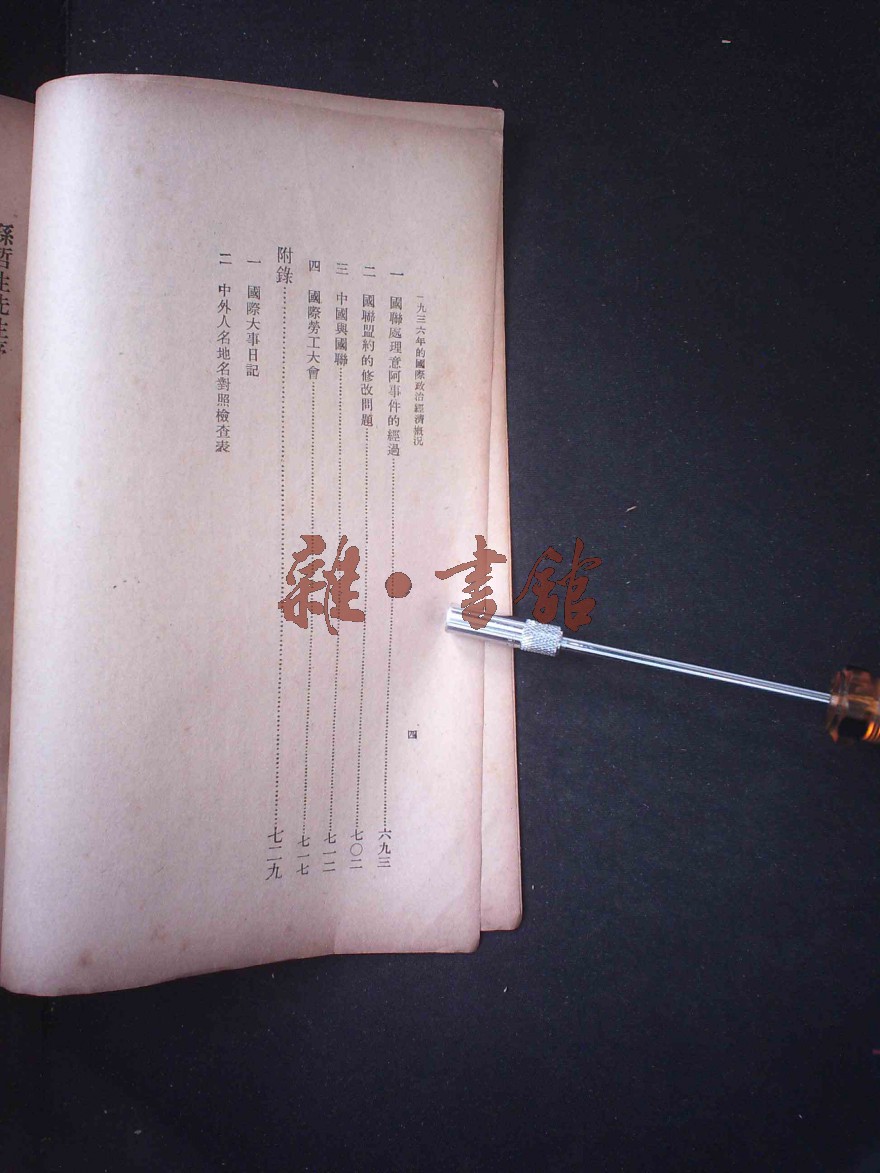 一九三六年的國際政治經濟概況
四
一 國聯處理意阿事件的經過……六九三
二 國聯盟約的修改問題……七〇二
三 中國與國聯……七一二
四 國際勞工大會……七一七
附錄……七二九
一 國際大事日記
二 中外人名地名對照檢查表
孫哲生先生序
雜·書館